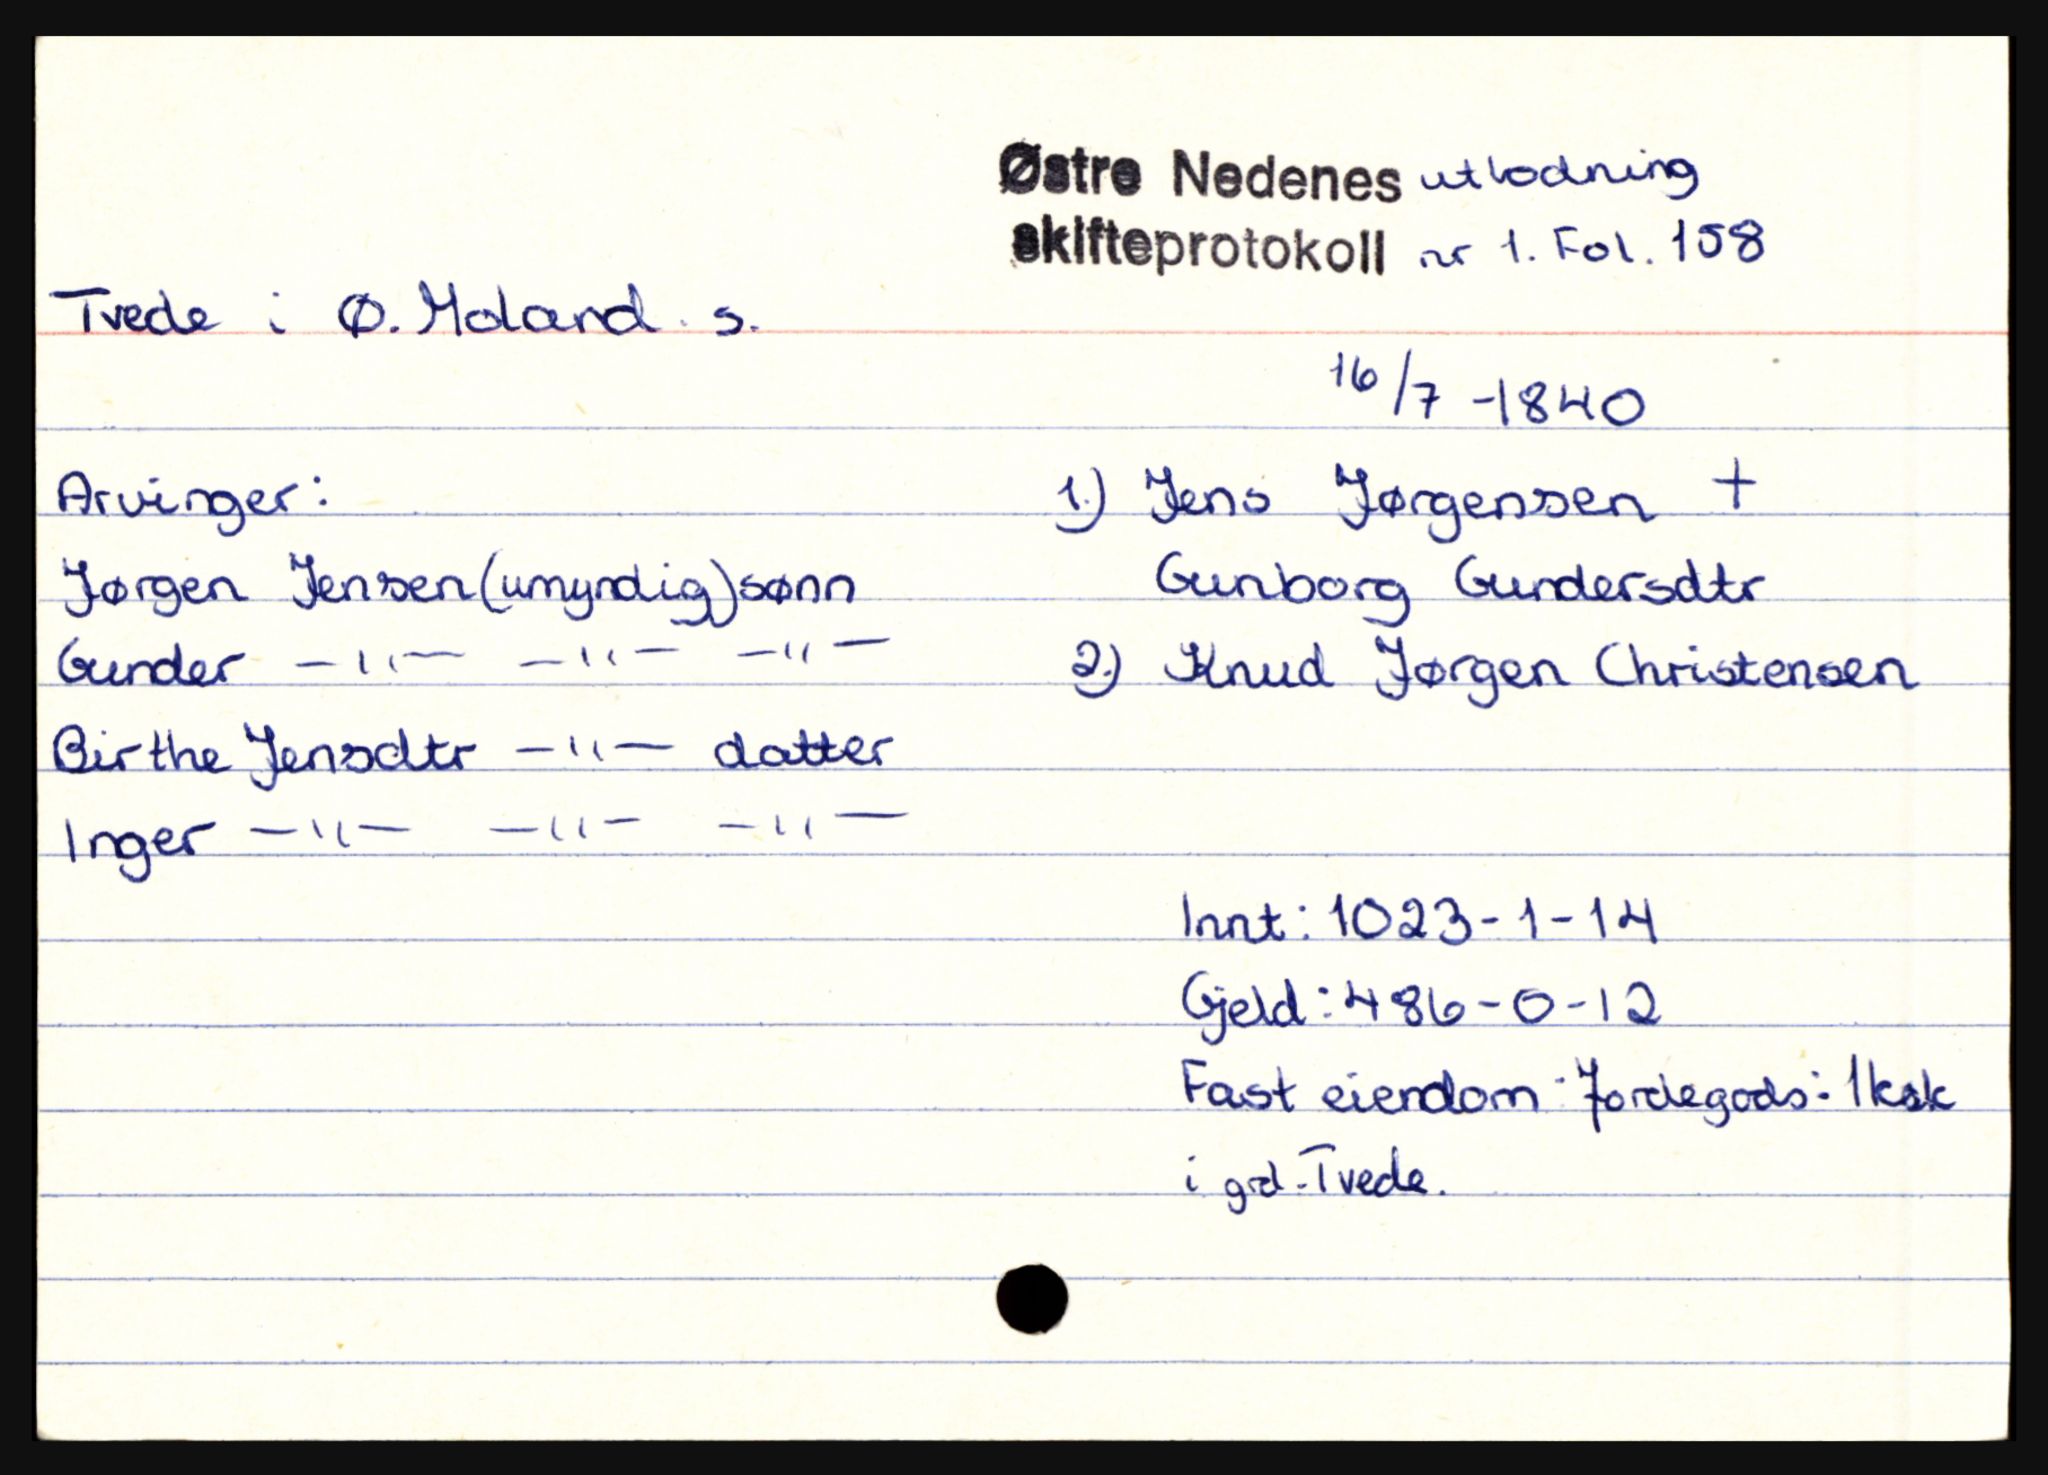 Østre Nedenes utlodning
skifteprotokoll nr 1. Fol. 158
Tvede i Ø. Moland s.
16/7 -1840
Arvinger:
Jørgen Jensen (umyndig) sønn
Gunder —"— —"— —"—
Birthe Jensdtr —"— datter
Inger —"— —"— —"—
1.) Jens Jørgensen +
Gunborg Gundersdtr
2.) Knud Jørgen Christensen
Innt: 1023-1-14
Gjeld: 486-0-12
Fast eiendom: Jordegods: 1ksk
i grd. Tvede.